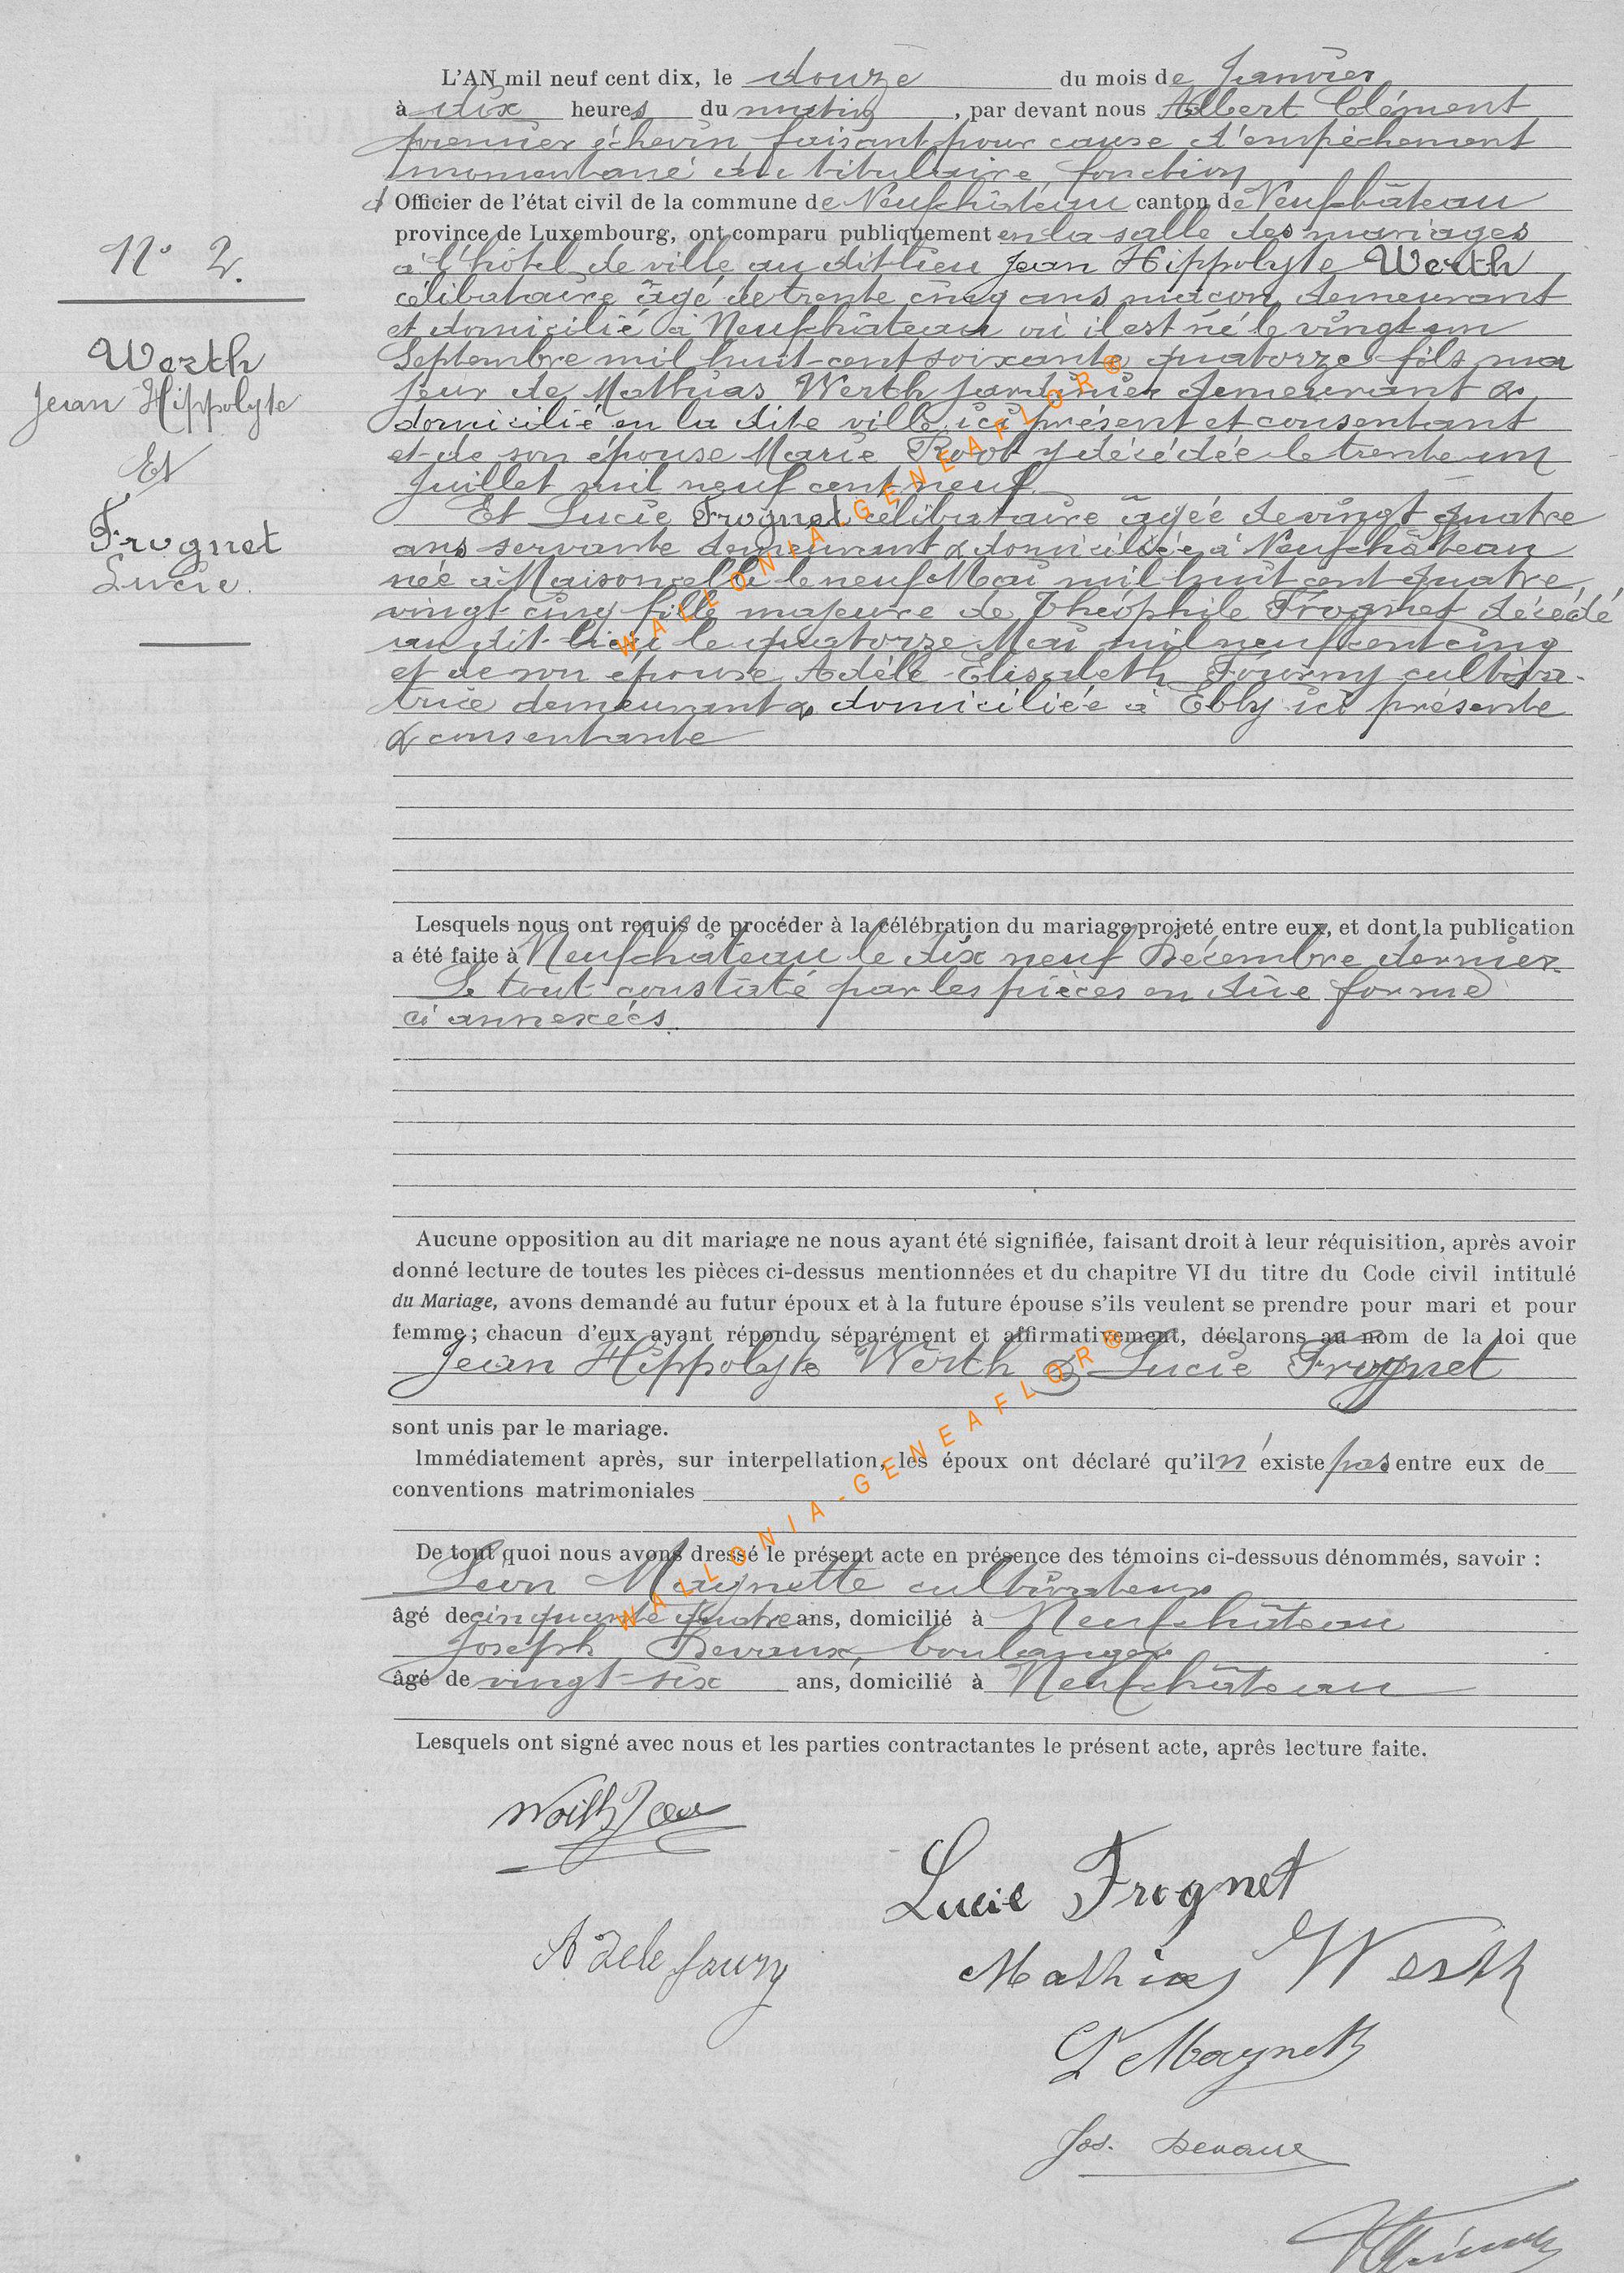 L'AN mil neuf cent dix, le douze du mois de Janvier
à dix heures du matin, par devant nous Albert Clément
premier échevin faisant pour cause d'empêchement
momentané du titulaire, fonction
d'Officier de l'état civil de la commune de Neufchâteau canton de Neufchâteau
province de Luxembourg, ont comparu publiquement en la salle des mariages
à l'hôtel de ville au dit lieu Jean Hippolyte Werth
célibataire âgé de trente cinq ans maçon, demeurant
et domicilié à Neufchâteau où il est né le vingt un
Septembre mil huit cent soixante quatorze fils ma
jeur de Mathias Werth jardinier demeurant &
domicilié en la dite ville, ici présent et consentant
et de son épouse Marie Roob y décédée le trente un
Juillet mil neuf cent neuf
Et Lucie Frognet célibataire âgée de vingt quatre
ans servante demeurant & domiciliée à Neufchâteau
née à Maisoncelle le neuf Mai mil huit cent quatre
vingt cinq fille majeure de Théophile Frognet décédé
au dit lieu le quatorze Mai mil neuf cent cinq
et de son épouse Adèle-Elisabeth Fourny cultiva-
trice demeurant & domiciliée à Ebly ici présente
& consentante
N° 2.
Werth
Jean Hippolyte
Et
Frognet
Lucie.
Lesquels nous ont requis de procéder à la célébration du mariage projeté entre eux, et dont la publication
a été faite à Neufchâteau le dix neuf Décembre dernier.
Le tout constaté par les pièces en due forme
ci annexées.
Aucune opposition au dit mariage ne nous ayant été signifiée, faisant droit à leur réquisition, après avoir
donné lecture de toutes les pièces ci-dessus mentionnées et du chapitre VI du titre du Code civil intitulé
du Mariage, avons demandé au futur époux et à la future épouse s'ils veulent se prendre pour mari et pour
femme ; chacun d'eux ayant répondu séparément et affirmativement, déclarons au nom de la loi que
Jean Hippolyte Werth & Lucie Frognet
sont unis par le mariage.
Immédiatement après, sur interpellation, les époux ont déclaré qu'il n'existe pas entre eux de
conventions matrimoniales
De tout quoi nous avons dressé le présent acte en présence des témoins ci-dessous dénommés, savoir :
Léon Maynette cultivateur
âgé de cinquante quatre ans, domicilié à Neufchâteau
Joseph Devaux, boulanger
âgé de vingt-six ans, domicilié à Neufchâteau
Lesquels ont signé avec nous et les parties contractantes le présent acte, après lecture faite.
Lucie Frognet
Adele fourny
Mathias Werth
Jos. Devaux
WALLONIA-GENEAFLOR®
WALLONIA-GENEAFLOR®